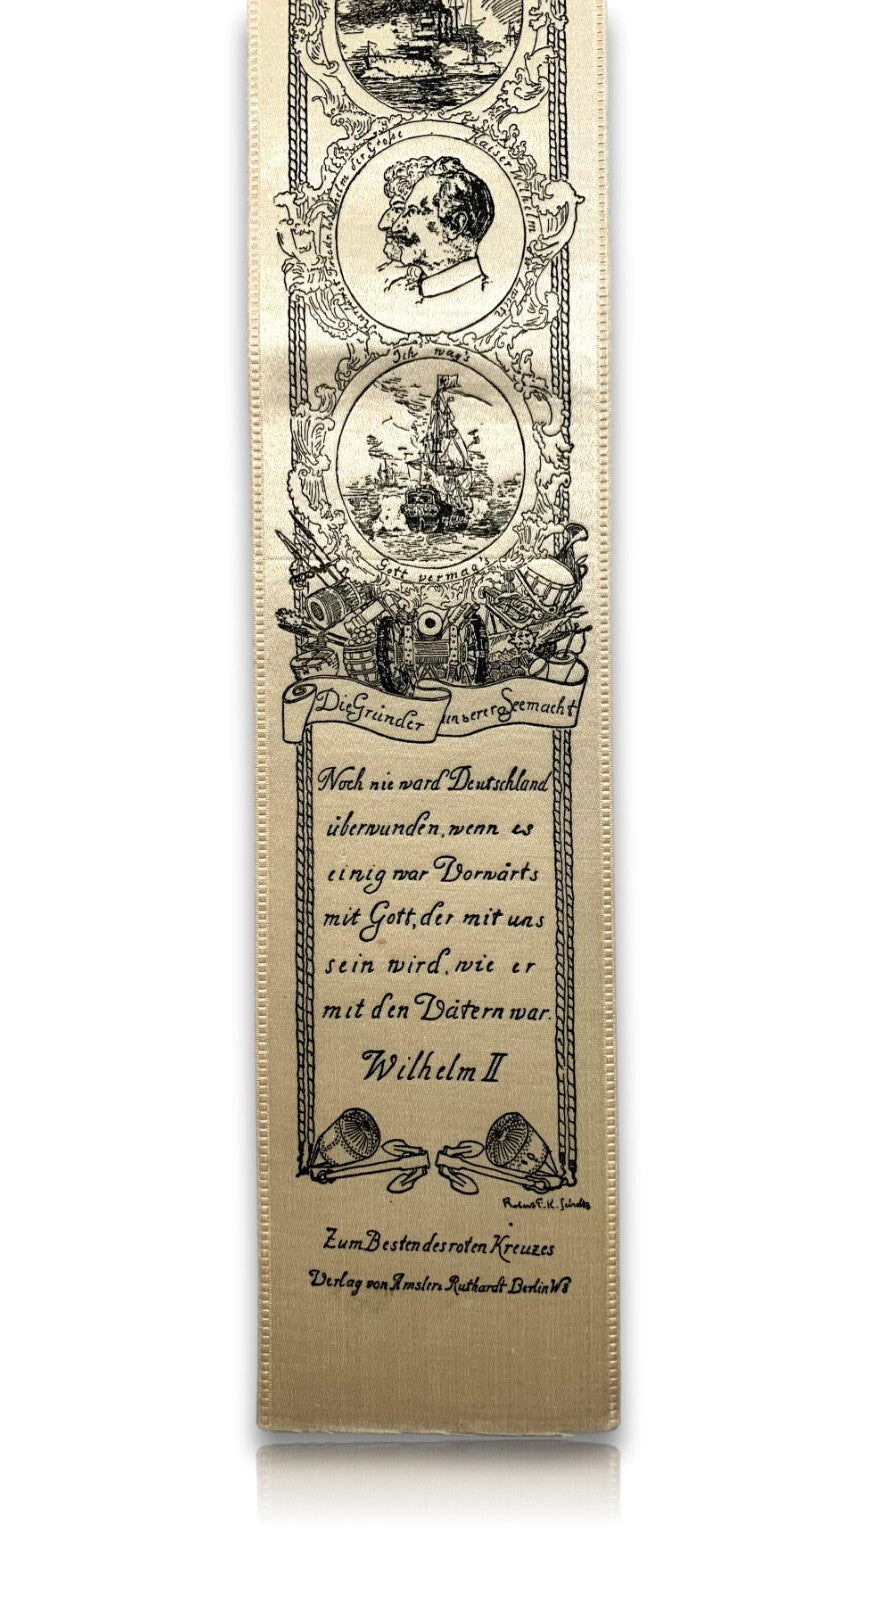 Kurfürst Friedr. Wilhelm der Große
Kaiser Wilhelm der Zweite
Ich wag's
Gott vermag's
Die Gründer unserer Seemacht
Noch nie ward Deutschland
überwunden, wenn es
einig war Vorwärts
mit Gott, der mit uns
sein wird, wie er
mit den Vätern war.
Wilhelm II
Robert F. K. Scholtz
Zum Besten des roten Kreuzes
Verlag von Amsler u. Ruthardt Berlin W8